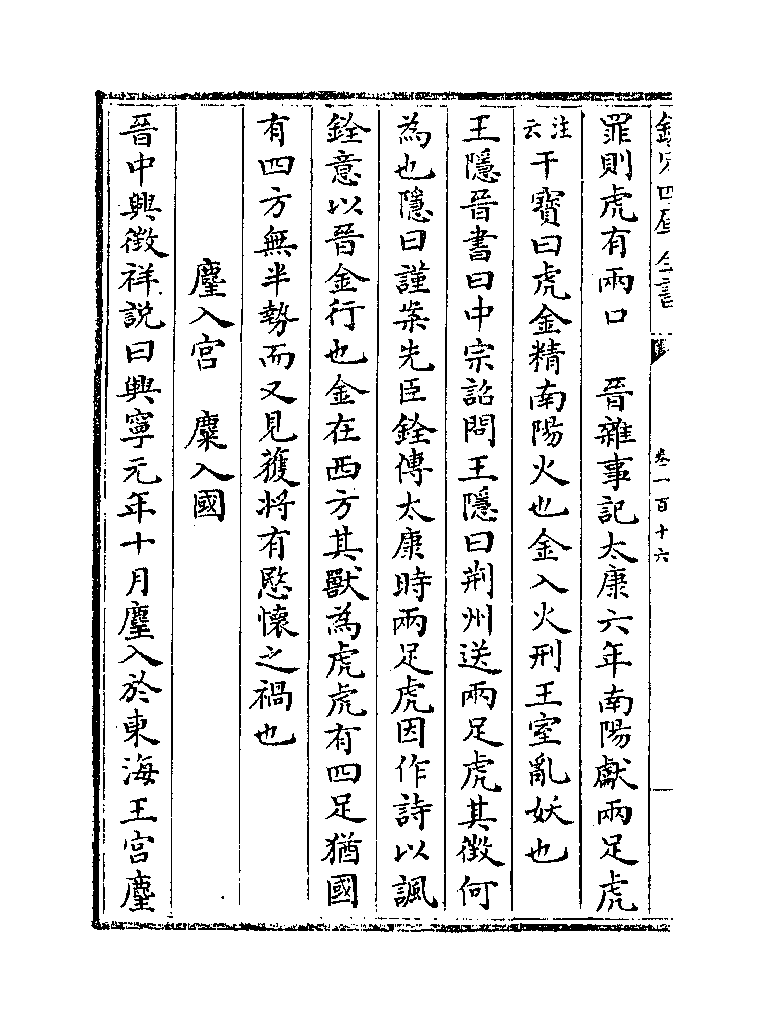 欽定四庫全書　卷一百十六
罪則虎有兩口　晉雜事記太康六年南陽獻兩足虎
注云干寶曰虎金精南陽火也金入火刑王室亂妖也
王隱晉書曰中宗詔問王隱曰荆州送兩足虎其徵何
為也隱曰謹案先臣銓傳太康時兩足虎因作詩以諷
銓意以晉金行也金在西方其獸為虎虎有四足猶國
有四方無半勢而又見獲將有愍懷之禍也
麈入宮　麋入國
晉中興徵祥説曰興寧元年十月麈入於東海王宮麈